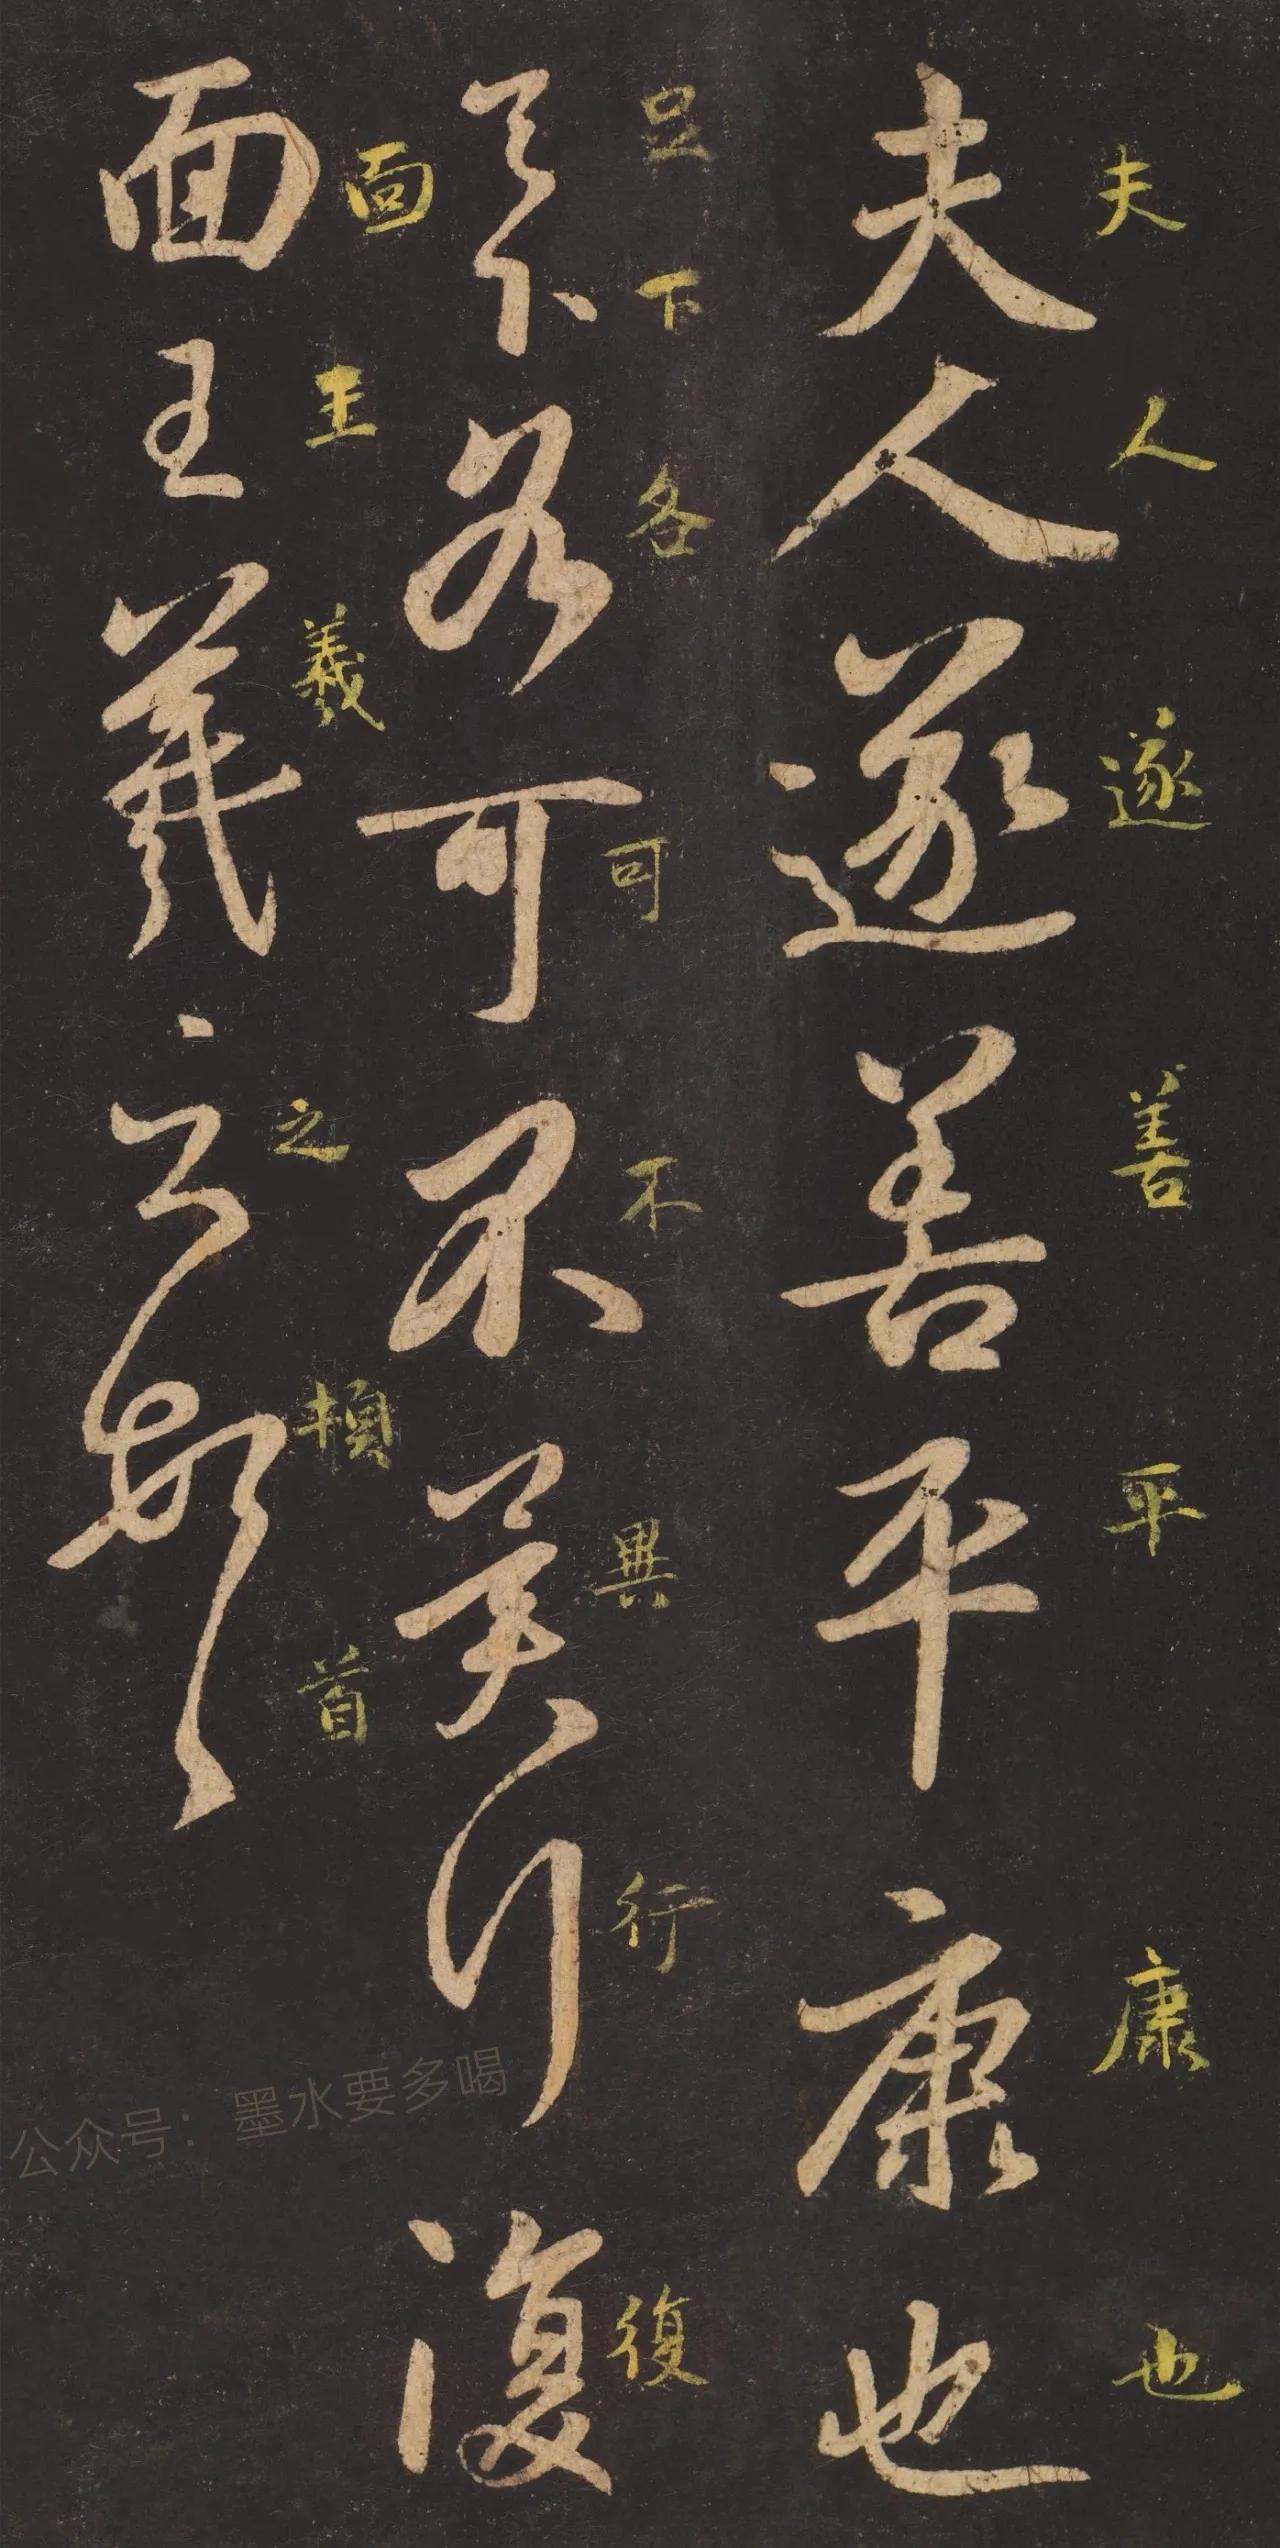 夫人遂善平康也
夫人遂善平康也
足下各可不異行復
足下各可不異行復
面王羲之頓首
面王羲之頓首
公众号：墨水要多喝